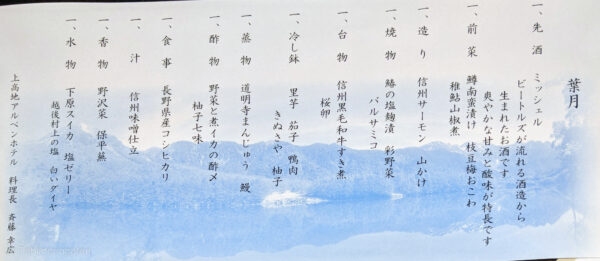 葉月
一、先 酒 ミッシェル
ビートルズが流れる酒造から
生まれたお酒です
爽やかな甘みと酸味が特長です
一、前 菜 鱒南蛮漬け 枝豆梅おこわ
稚鮎山椒煮
一、造 り 信州サーモン 山かけ
一、焼 物 鰆の塩麹漬 彩野菜
バルサミコ
一、台 物 信州黒毛和牛すき煮
桜卵
一、冷し鉢 里芋 茄子 鴨肉
きぬさや 柚子
一、蒸 物 道明寺まんじゅう 鰻
一、酢 物 野菜と煮イカの酢〆
柚子七味
一、食 事 長野県産コシヒカリ
一、 汁 信州味噌仕立
一、香 物 野沢菜 保平蕪
一、水 物 下原スイカ 塩ゼリー
越後村上の塩 白いダイヤ
上高地アルペンホテル 料理長 斉藤 幸広